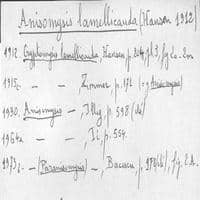 Anisomysis lamellicauda (Hansen 1912)
1912 Cryptomysis lamellicauda Hansen, p. 204, pl. 3, fig 2a-2m
1915 - - Zimmer, p. 172 (→ Anisomysis)
1930. Anisomysis - , Illig, p. 598 (clé)
1964a - - Ii, p. 554.
1973. - (Paranisomysis) - , Bacescu, p.